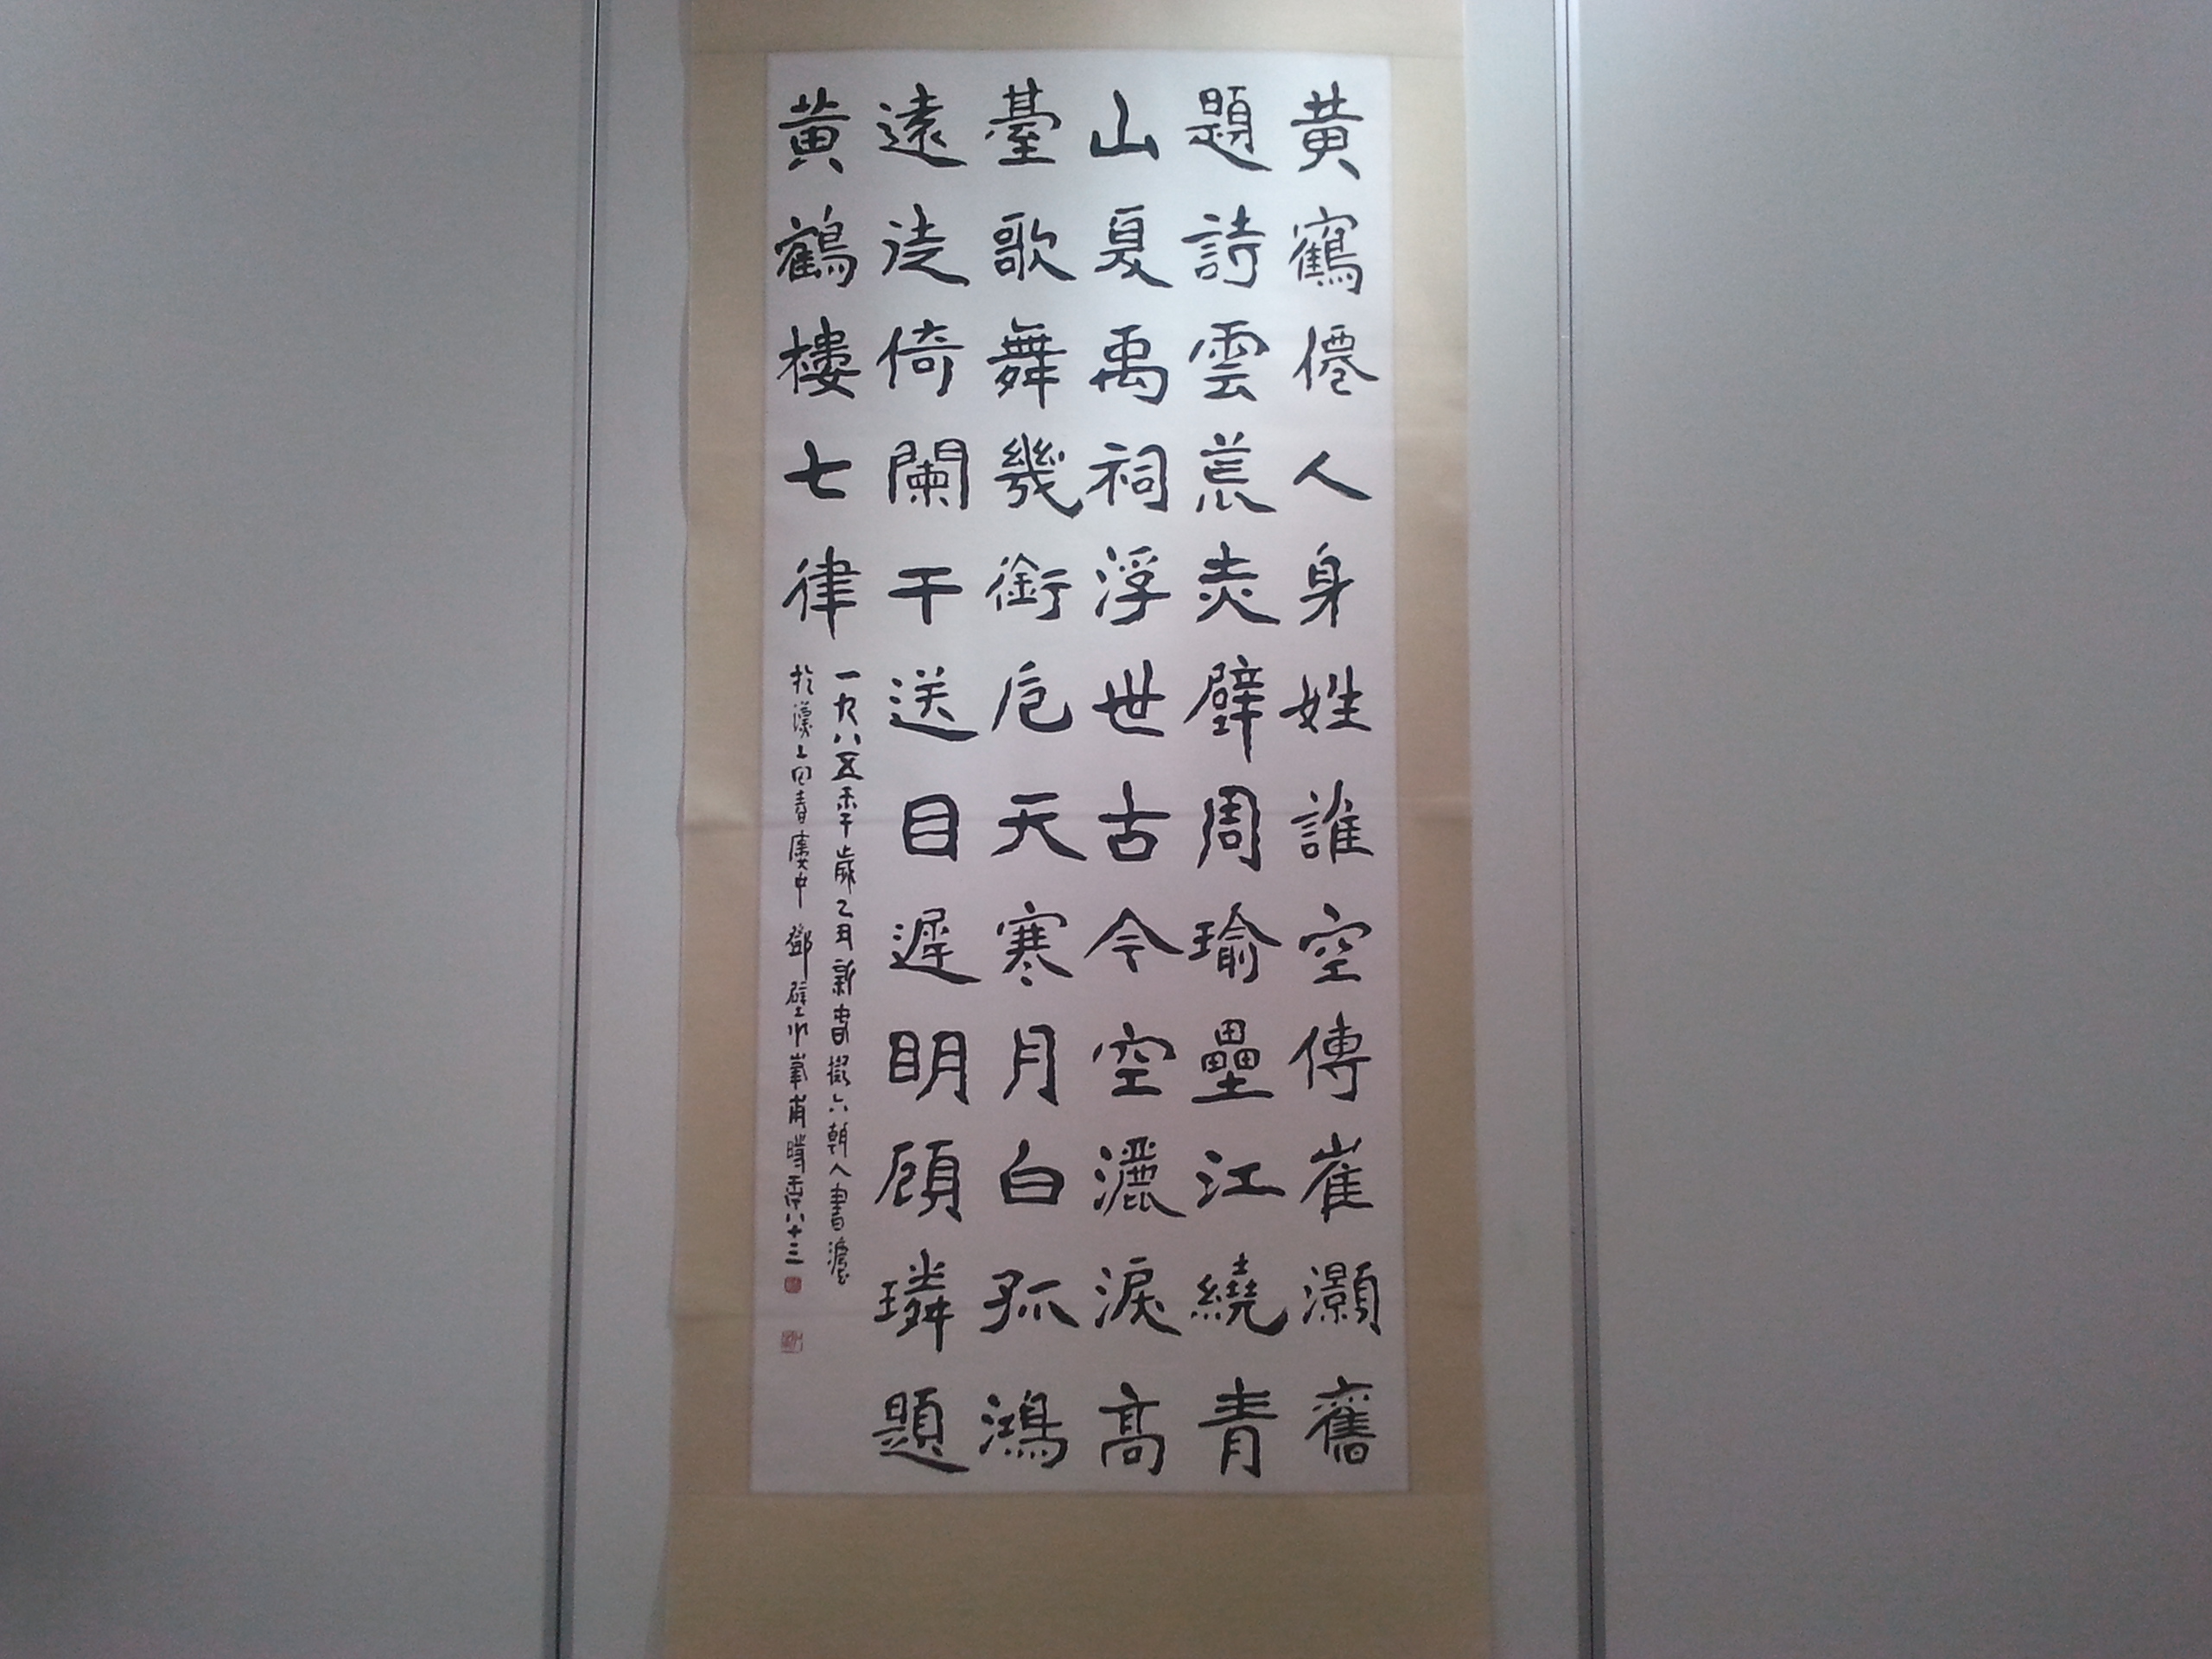 黃鶴僊人身姓誰空傳崔灝舊
題詩雲荒赤壁周瑜壘江繞青
山夏禹祠浮世古今空灑淚高
臺歌舞幾銜卮天寒月白孤鴻
遠徒倚闌干送目遲明顧璘題
黃鶴樓七律
一九八五年歲乙丑新春擬六朝人書灋
於漢上回春廔中 鄧壁 峯甫時年八十三